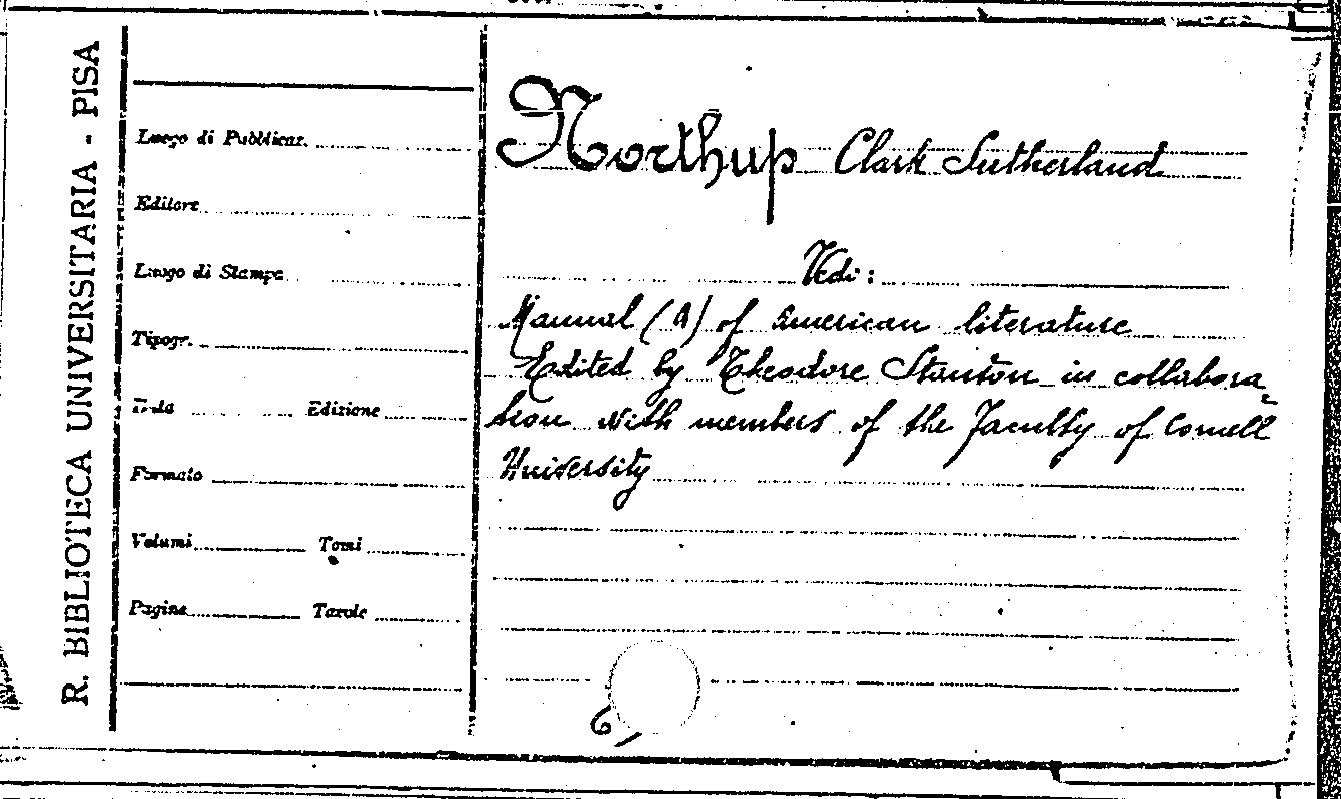 R. BIBLIOTECA UNIVERSITARIA - PISA
Luogo di Pubblicaz.
Editore
Luogo di Stampa
Tipogr.
Data Edizione
Formato
Volumi Tomi
Pagine Tavole
Northup Clark Sutherland
Vedi:
Manual (A) of American literature
Edited by Theodore Stanton in collabora-
tion with members of the Faculty of Cornell
University
6